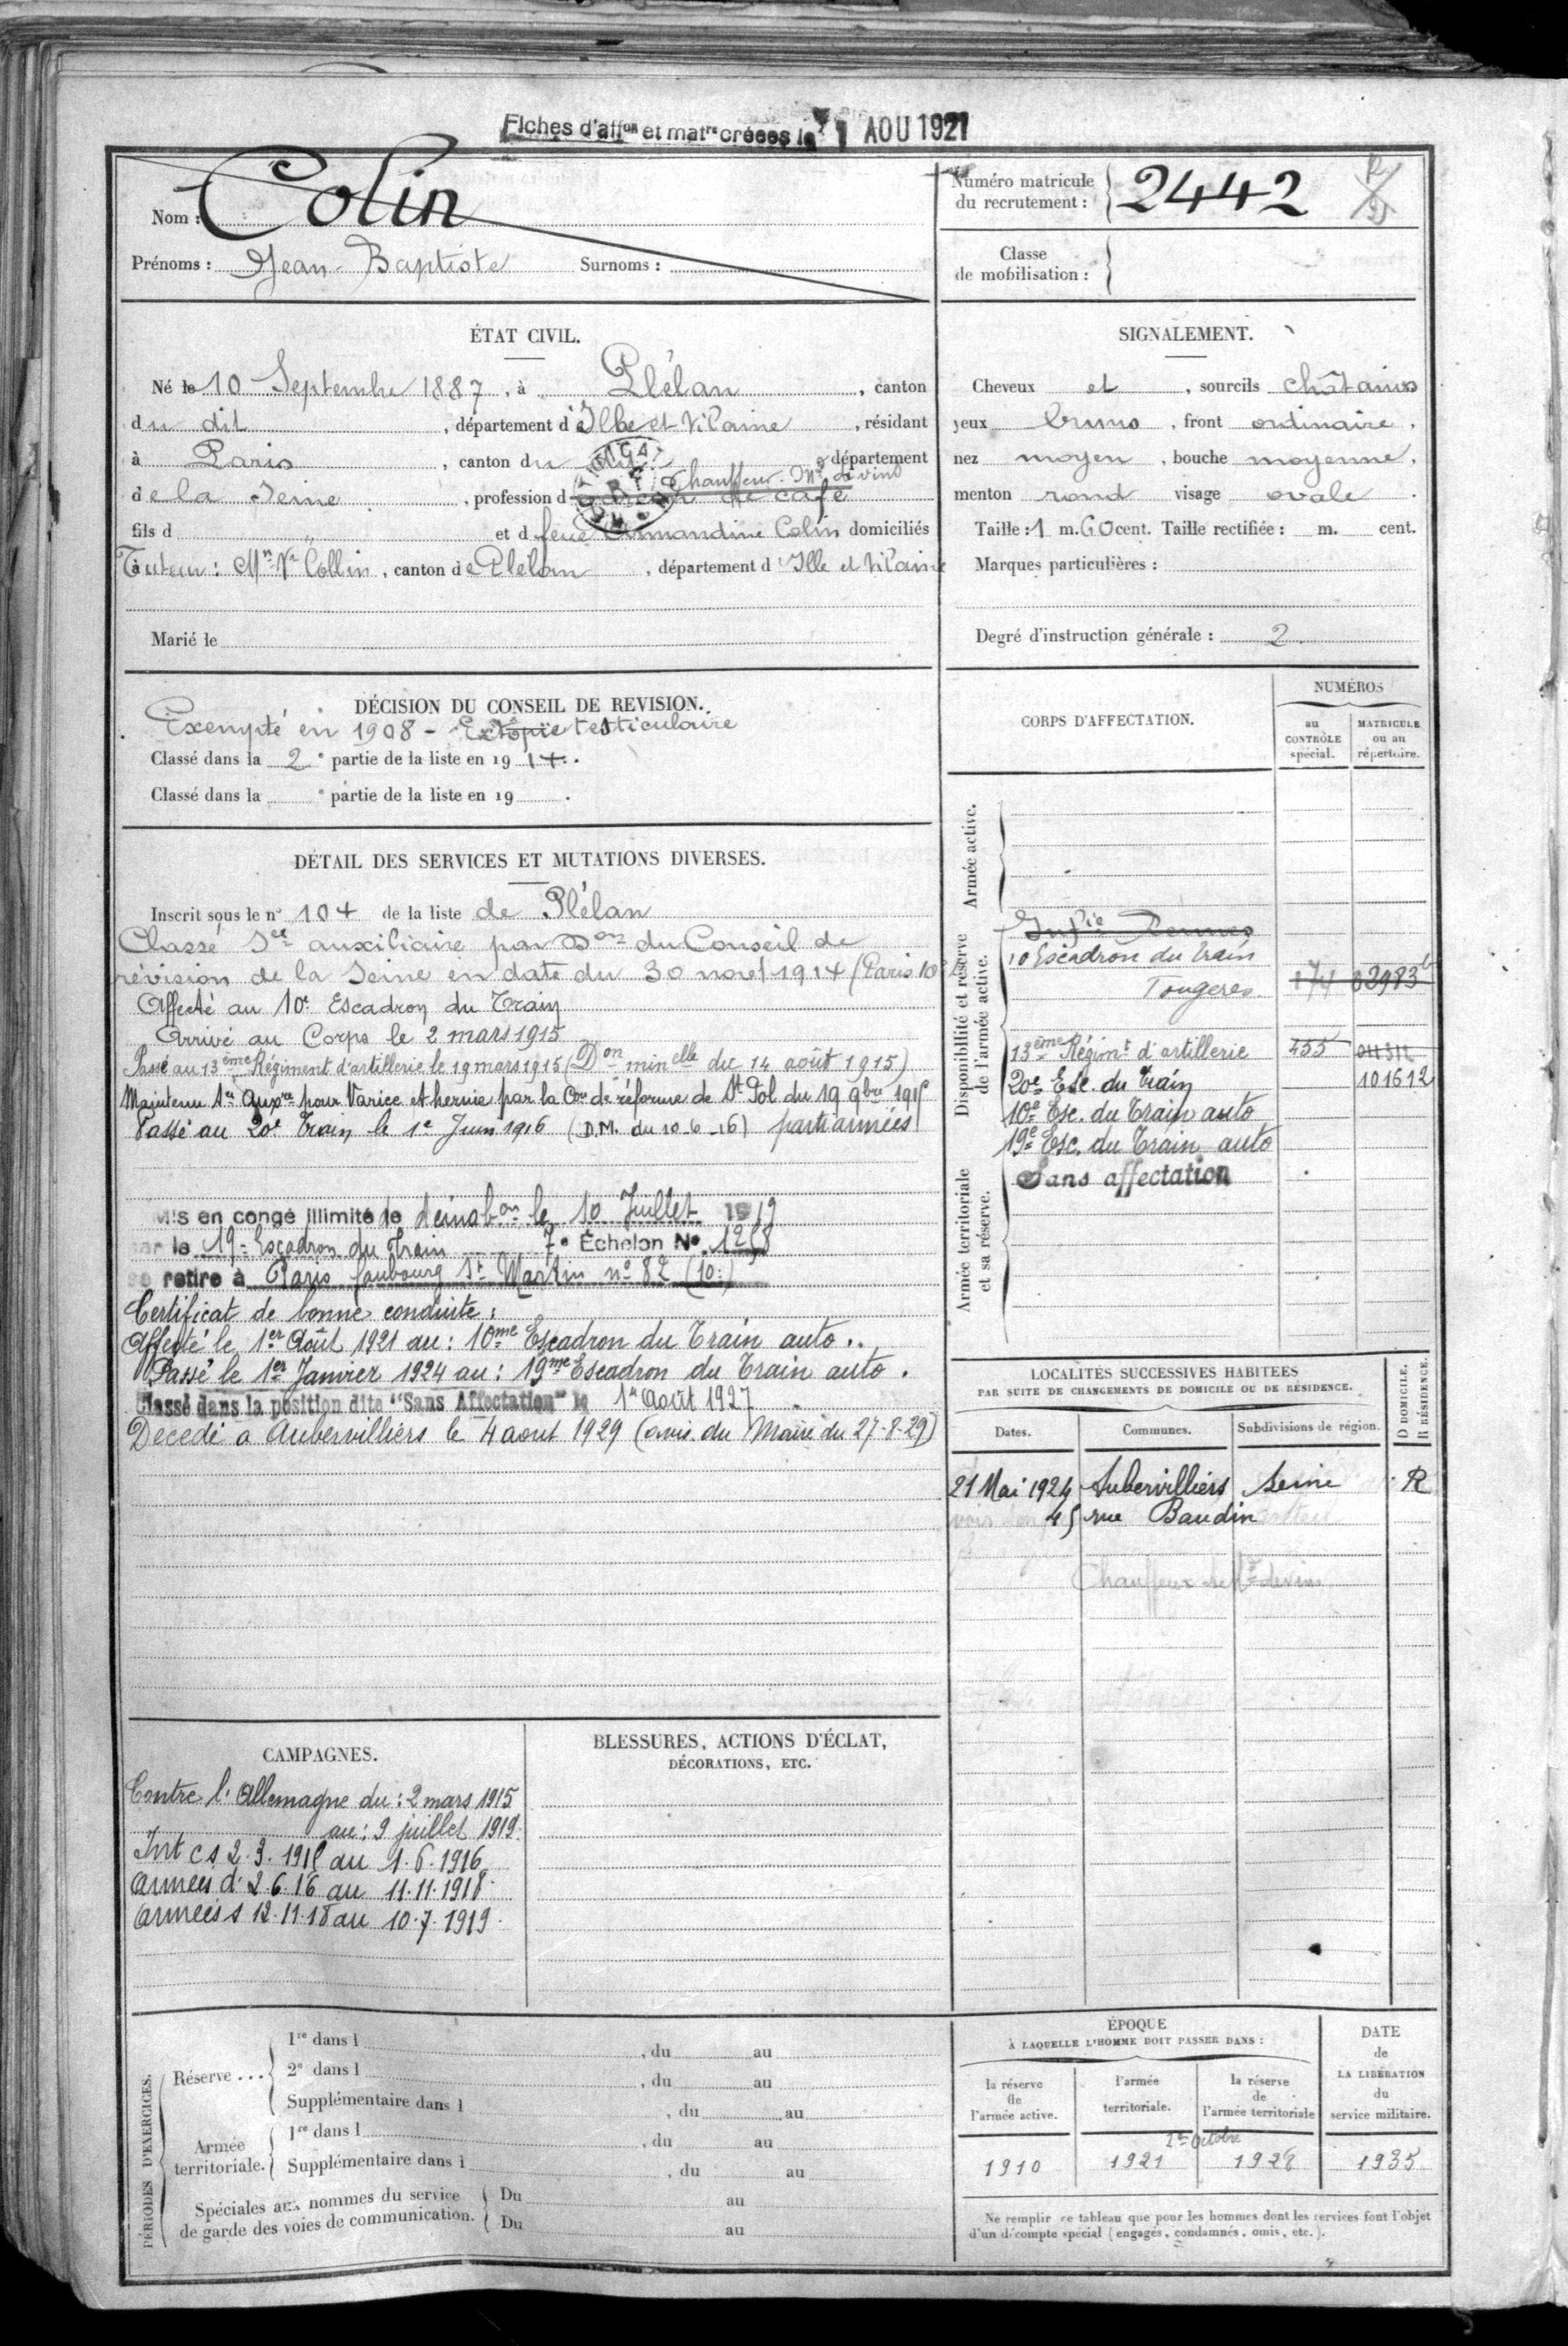 Fiches d'affon et matre créées le 1 AOU 1921
Nom : Colin
Prénoms : Jean-Baptiste Surnoms :
Numéro matricule
du recrutement : 2442
Classe
de mobilisation :
ÉTAT CIVIL.
Né le 10 Septembre 1887, à Plélan, canton
du dit, département d'Ille et Vilaine, résidant
à Paris, canton du département
Chauffeur Md de vins
de la Seine, profession d garçon de café
fils d " et d feue Armandine Colin domiciliés
Tuteur : Mn Ve Collin, canton de Plélan, département d'Ille et Vilaine
Marié le
SIGNALEMENT.
Cheveux et, sourcils châtains
yeux bruns, front ordinaire,
nez moyen, bouche moyenne,
menton rond visage ovale.
Taille : 1 m. 60 cent. Taille rectifiée : m. cent.
Marques particulières :
Degré d'instruction générale : 2
DÉCISION DU CONSEIL DE REVISION.
Exempté en 1908 - Ectopie testiculaire
Classé dans la 2e partie de la liste en 1914.
Classé dans la e partie de la liste en 19 .
DÉTAIL DES SERVICES ET MUTATIONS DIVERSES.
Inscrit sous le no 104 de la liste de Plélan
Classé Sce auxiliaire par Don du Conseil de
révision de la Seine en date du 30 novet 1914 (Paris 10e
Affecté au 10e Escadron du Train
Arrivé au Corps le 2 mars 1915
Passé au 13ème Régiment d'artillerie le 19 mars 1915 (Don minelle du 14 août 1915)
Maintenu Sce Auxre pour Varice et hernie par la Con de réforme de St Pol du 19 9bre 1915
Passé au 20e Train le 1e Juin 1916 (D.M. du 10-6-16) parti armées
Mis en congé illimité de démobon le 10 Juillet 1919
par le 19e Escadron du Train 7e Échelon No 1268
se retire à Paris faubourg St Martin no 82 (10e)
Certificat de bonne conduite :
Affecté le 1er Août 1921 au : 10me Escadron du Train auto..
Passé le 1er Janvier 1924 au : 19me Escadron du Train auto.
Classé dans la position dite "Sans Affectation" le 1er Août 1927
Décédé à Aubervilliers le 4 aout 1929 (avis du Maire du 27-8-29)
CORPS D'AFFECTATION.
NUMÉROS
au
CONTRÔLE
spécial.
MATRICULE
ou au
répertoire.
Armée active.
Disponibilité et réserve
de l'armée active.
Infie Rennes
10 Escadron du train
Fougères 174 02983
13ème Régimt d'artillerie 455
20e Esc. du Train 101612
10e Esc. du Train auto
19e Esc. du Train auto
Sans affectation
Armée territoriale
et sa réserve.
LOCALITÉS SUCCESSIVES HABITÉES
PAR SUITE DE CHANGEMENTS DE DOMICILE OU DE RÉSIDENCE.
D DOMICILE.
R RÉSIDENCE.
Dates. Communes. Subdivisions de région.
21 Mai 1924 Aubervilliers Seine R
45 rue Baudin
Chauffeur de Md de vins
CAMPAGNES.
Contre l'Allemagne du : 2 mars 1915
au : 9 juillet 1919.
Int cs 2.3.1915 au 1.6.1916
Armées d. 2.6.16 au 11.11.1918
Armées s 12.11.18 au 10.7.1919.
BLESSURES, ACTIONS D'ÉCLAT,
DÉCORATIONS, ETC.
PÉRIODES D'EXERCICES.
Réserve ...
1re dans l , du au
2e dans l , du au
Supplémentaire dans l , du au
Armée
territoriale.
1re dans l , du au
Supplémentaire dans l , du au
Spéciales aux hommes du service
de garde des voies de communication.
Du au
Du au
ÉPOQUE
À LAQUELLE L'HOMME DOIT PASSER DANS :
la réserve
de
l'armée active.
l'armée
territoriale.
la réserve
de
l'armée territoriale
DATE
de
LA LIBÉRATION
du
service militaire.
1er Octobre
1910 1921 1928 1935
Ne remplir ce tableau que pour les hommes dont les services font l'objet
d'un décompte spécial (engagés, condamnés, omis, etc.).